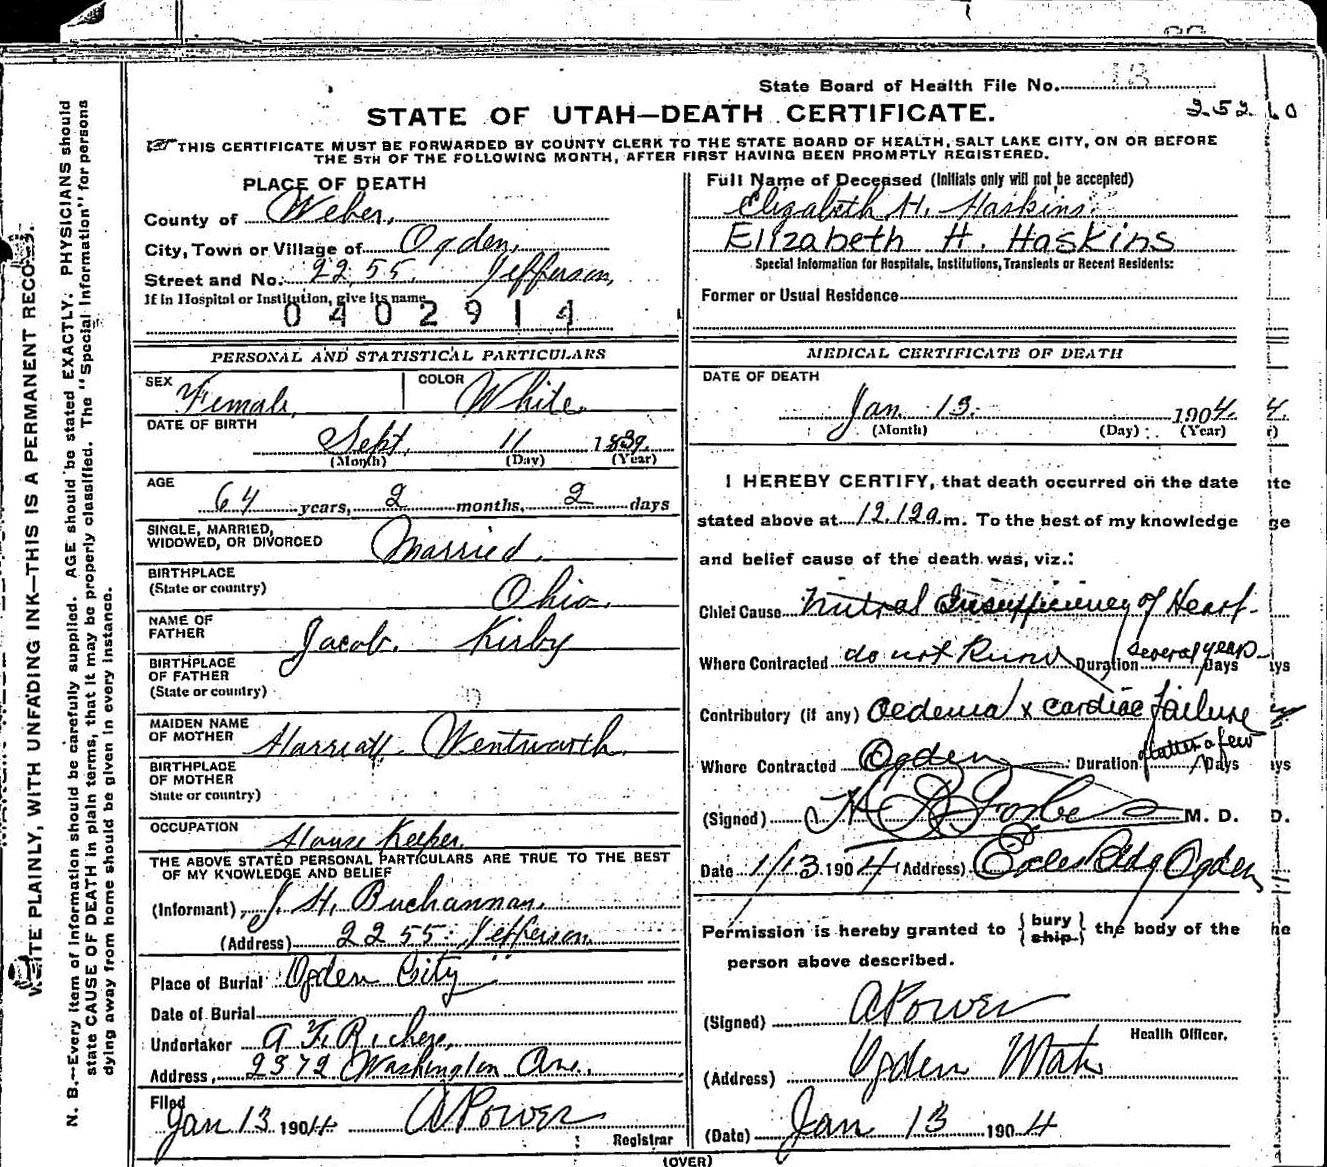 State Board of Health File No. 13
STATE OF UTAH—DEATH CERTIFICATE.
252
THIS CERTIFICATE MUST BE FORWARDED BY COUNTY CLERK TO THE STATE BOARD OF HEALTH, SALT LAKE CITY, ON OR BEFORE
THE 5TH OF THE FOLLOWING MONTH, AFTER FIRST HAVING BEEN PROMPTLY REGISTERED.
PLACE OF DEATH
County of Weber,
City, Town or Village of Ogden,
Street and No. 2255 Jefferson,
If in Hospital or Institution, give its name
0402914
Full Name of Deceased (Initials only will not be accepted)
Elizabeth H. Haskins.
Elizabeth H. Haskins
Special Information for Hospitals, Institutions, Transients or Recent Residents:
Former or Usual Residence
PERSONAL AND STATISTICAL PARTICULARS
SEX Female, COLOR White.
DATE OF BIRTH
Sept. 11 1839.
(Month) (Day) (Year)
AGE
64 years, 2 months, 2 days
SINGLE, MARRIED,
WIDOWED, OR DIVORCED Married.
BIRTHPLACE
(State or country) Ohio.
NAME OF
FATHER Jacob. Kirby
BIRTHPLACE
OF FATHER
(State or country)
MAIDEN NAME
OF MOTHER Harriatt Wentworth
BIRTHPLACE
OF MOTHER
State or country)
OCCUPATION House Keeper.
THE ABOVE STATED PERSONAL PARTICULARS ARE TRUE TO THE BEST
OF MY KNOWLEDGE AND BELIEF
(Informant) J. H. Buchannan.
(Address) 2255 Jefferson.
Place of Burial Ogden City
Date of Burial
Undertaker
Address, 2372 Washington Ave.
Filed
Jan 13 1904 A Power
Registrar
MEDICAL CERTIFICATE OF DEATH
DATE OF DEATH
Jan. 13. 1904.
(Month) (Day) (Year)
I HEREBY CERTIFY, that death occurred on the date
stated above at 12.12 a m. To the best of my knowledge
and belief cause of the death was, viz.:
Chief Cause Mitral Insufficiency of Heart
Where Contracted do not Know Duration several years Days
Contributory (if any) Oedema x cardiac failure
Where Contracted Ogden Duration latter a few Days
(Signed) Forbes M. D.
Date 1/13 1904 (Address) Eccles Bldg Ogden
Permission is hereby granted to { bury ship } the body of the
person above described.
(Signed) A Power
Health Officer.
(Address) Ogden Utah
(Date) Jan 13 1904
(OVER)
WRITE PLAINLY, WITH UNFADING INK—THIS IS A PERMANENT RECORD.
N. B.—Every item of information should be carefully supplied. AGE should be stated EXACTLY. PHYSICIANS should
state CAUSE OF DEATH in plain terms, that it may be properly classified. The "Special Information" for persons
dying away from home should be given in every instance.